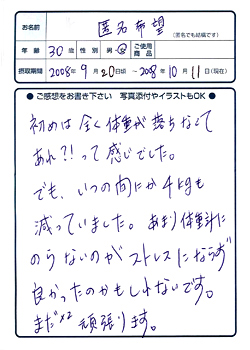 お名前 匿名希望
(匿名でも結構です)
年齢 30歳 性別 男・女 ご使用商品
摂取期間 2008年9月20日頃 ~ 2008年10月11日(現在)
● ご感想をお書き下さい 写真添付やイラストもOK ●
初めは全く体重が落ちなくて
あれ?!って感じでした。
でも、いつの間にか4kgも
減っていました。あまり体重計に
のらないのがストレスにならず
良かったのかもしれないです。
まだ×2頑張ります。